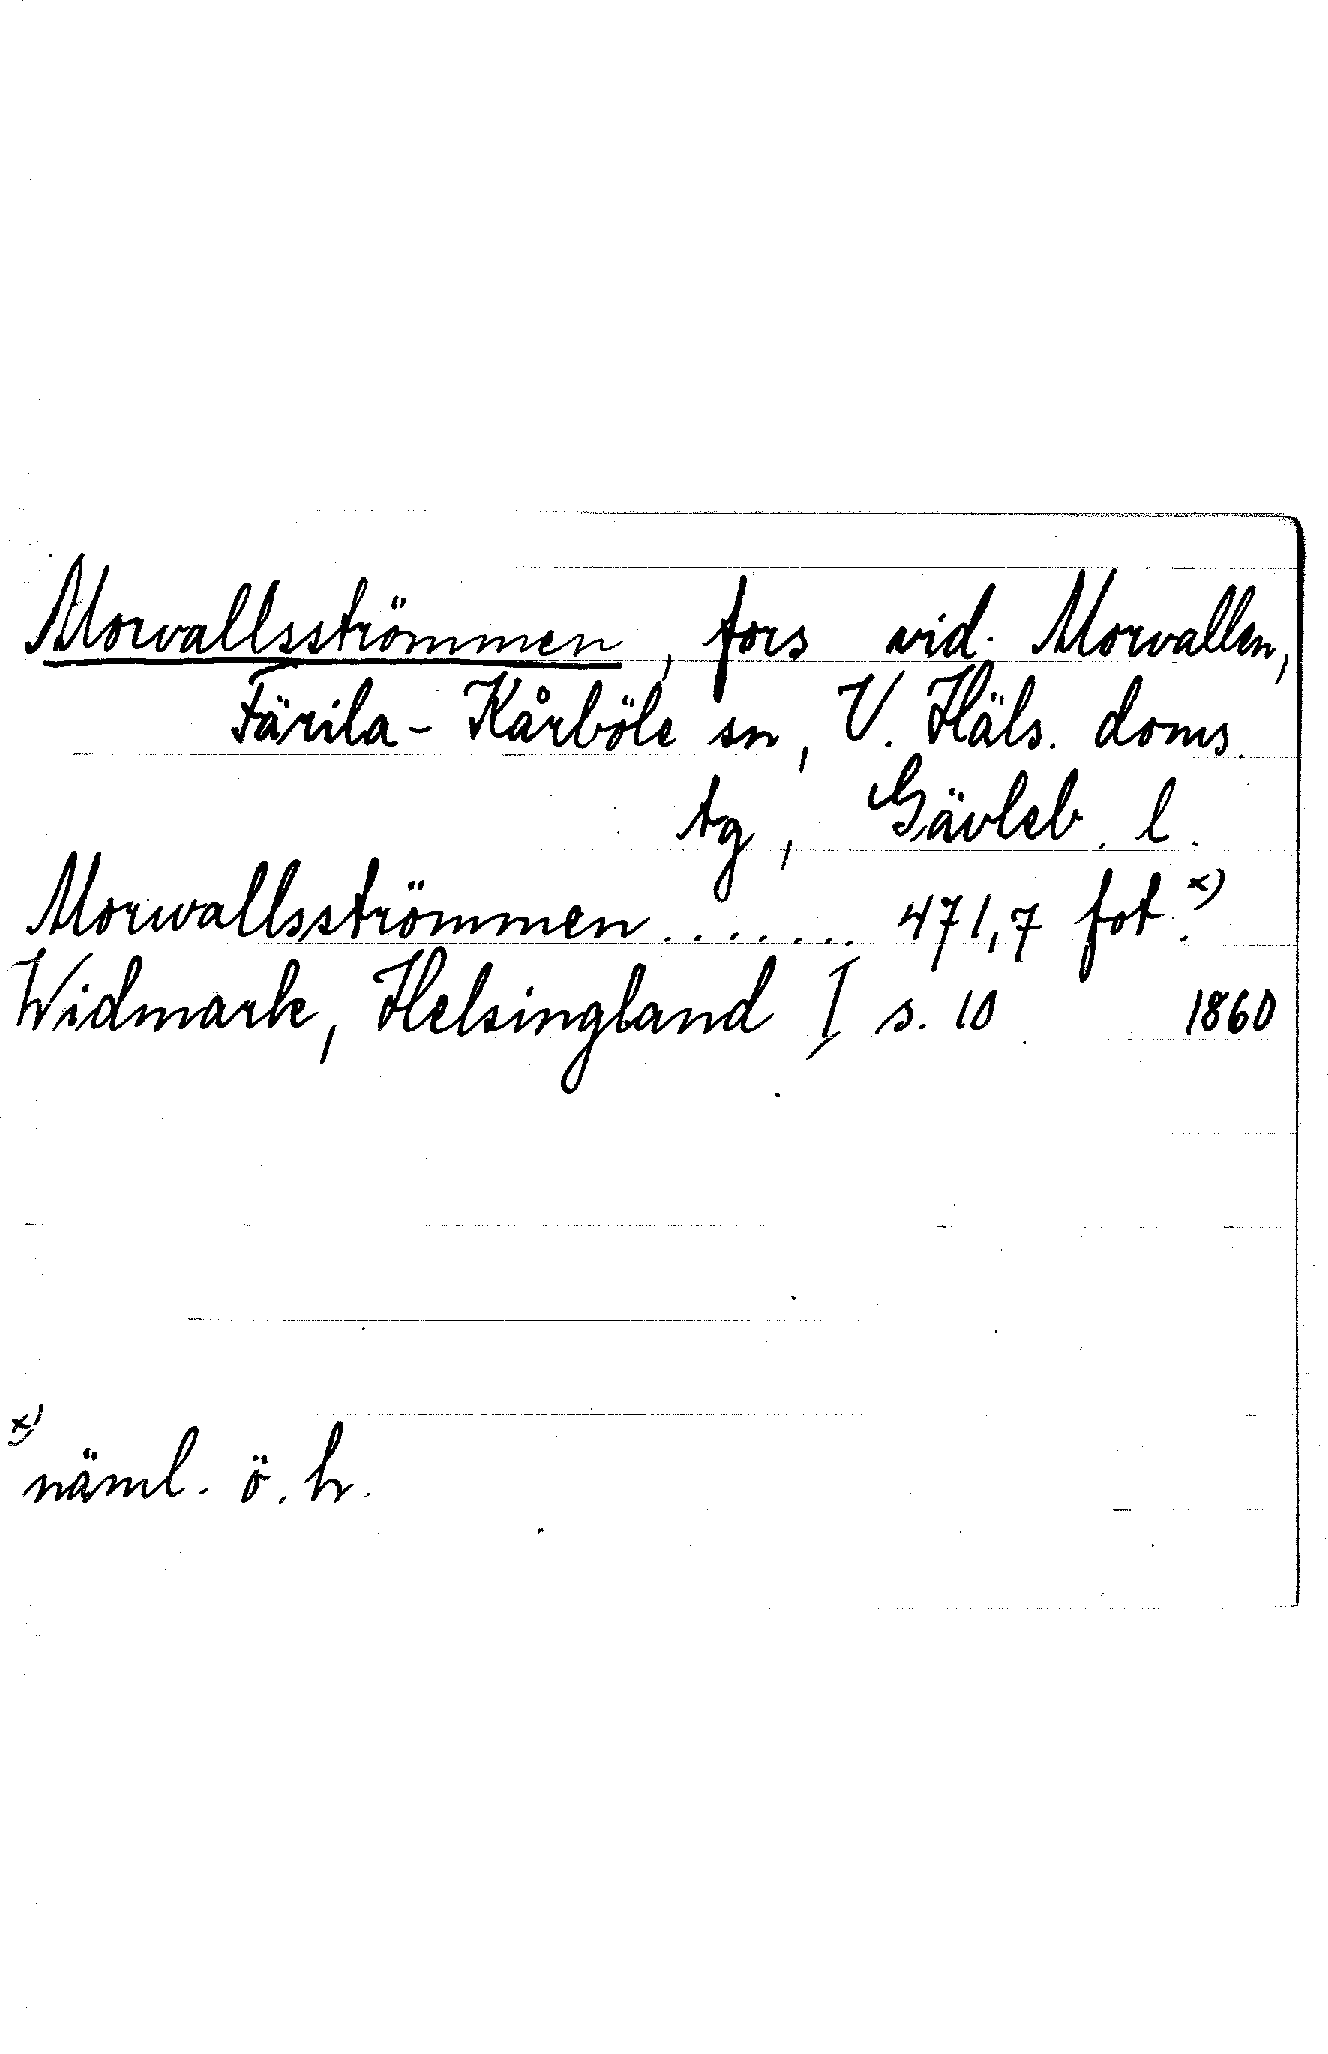 Morvallsströmmen, fors vid Morvallen,
Färila-Kårböle sn, V. Häls. doms.
tg, Gävleb. l.
Morwallsströmmen....... 471,7 fot.x)
Widmark, Helsingland I s. 10 1860
x)
näml. ö. h.